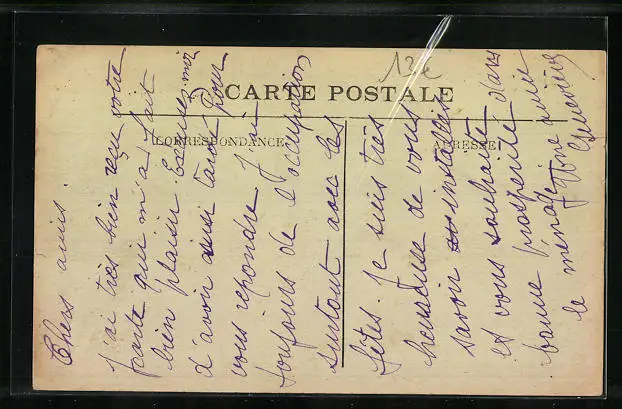 12€
CARTE POSTALE
CORRESPONDANCE
ADRESSE
Chers amis.
J'ai très bien reçu votre
carte qui m'a fait
bien plaisir. Excusez moi
d'avoir tardé pour
vous repondre J'ai
toujours de l'occupation
surtout avec les
fêtes. Je suis très
heureuse de vous
savoir installés
et vous souhaite dans
bonne prosperité
le ménage Votre amie
Geneviève